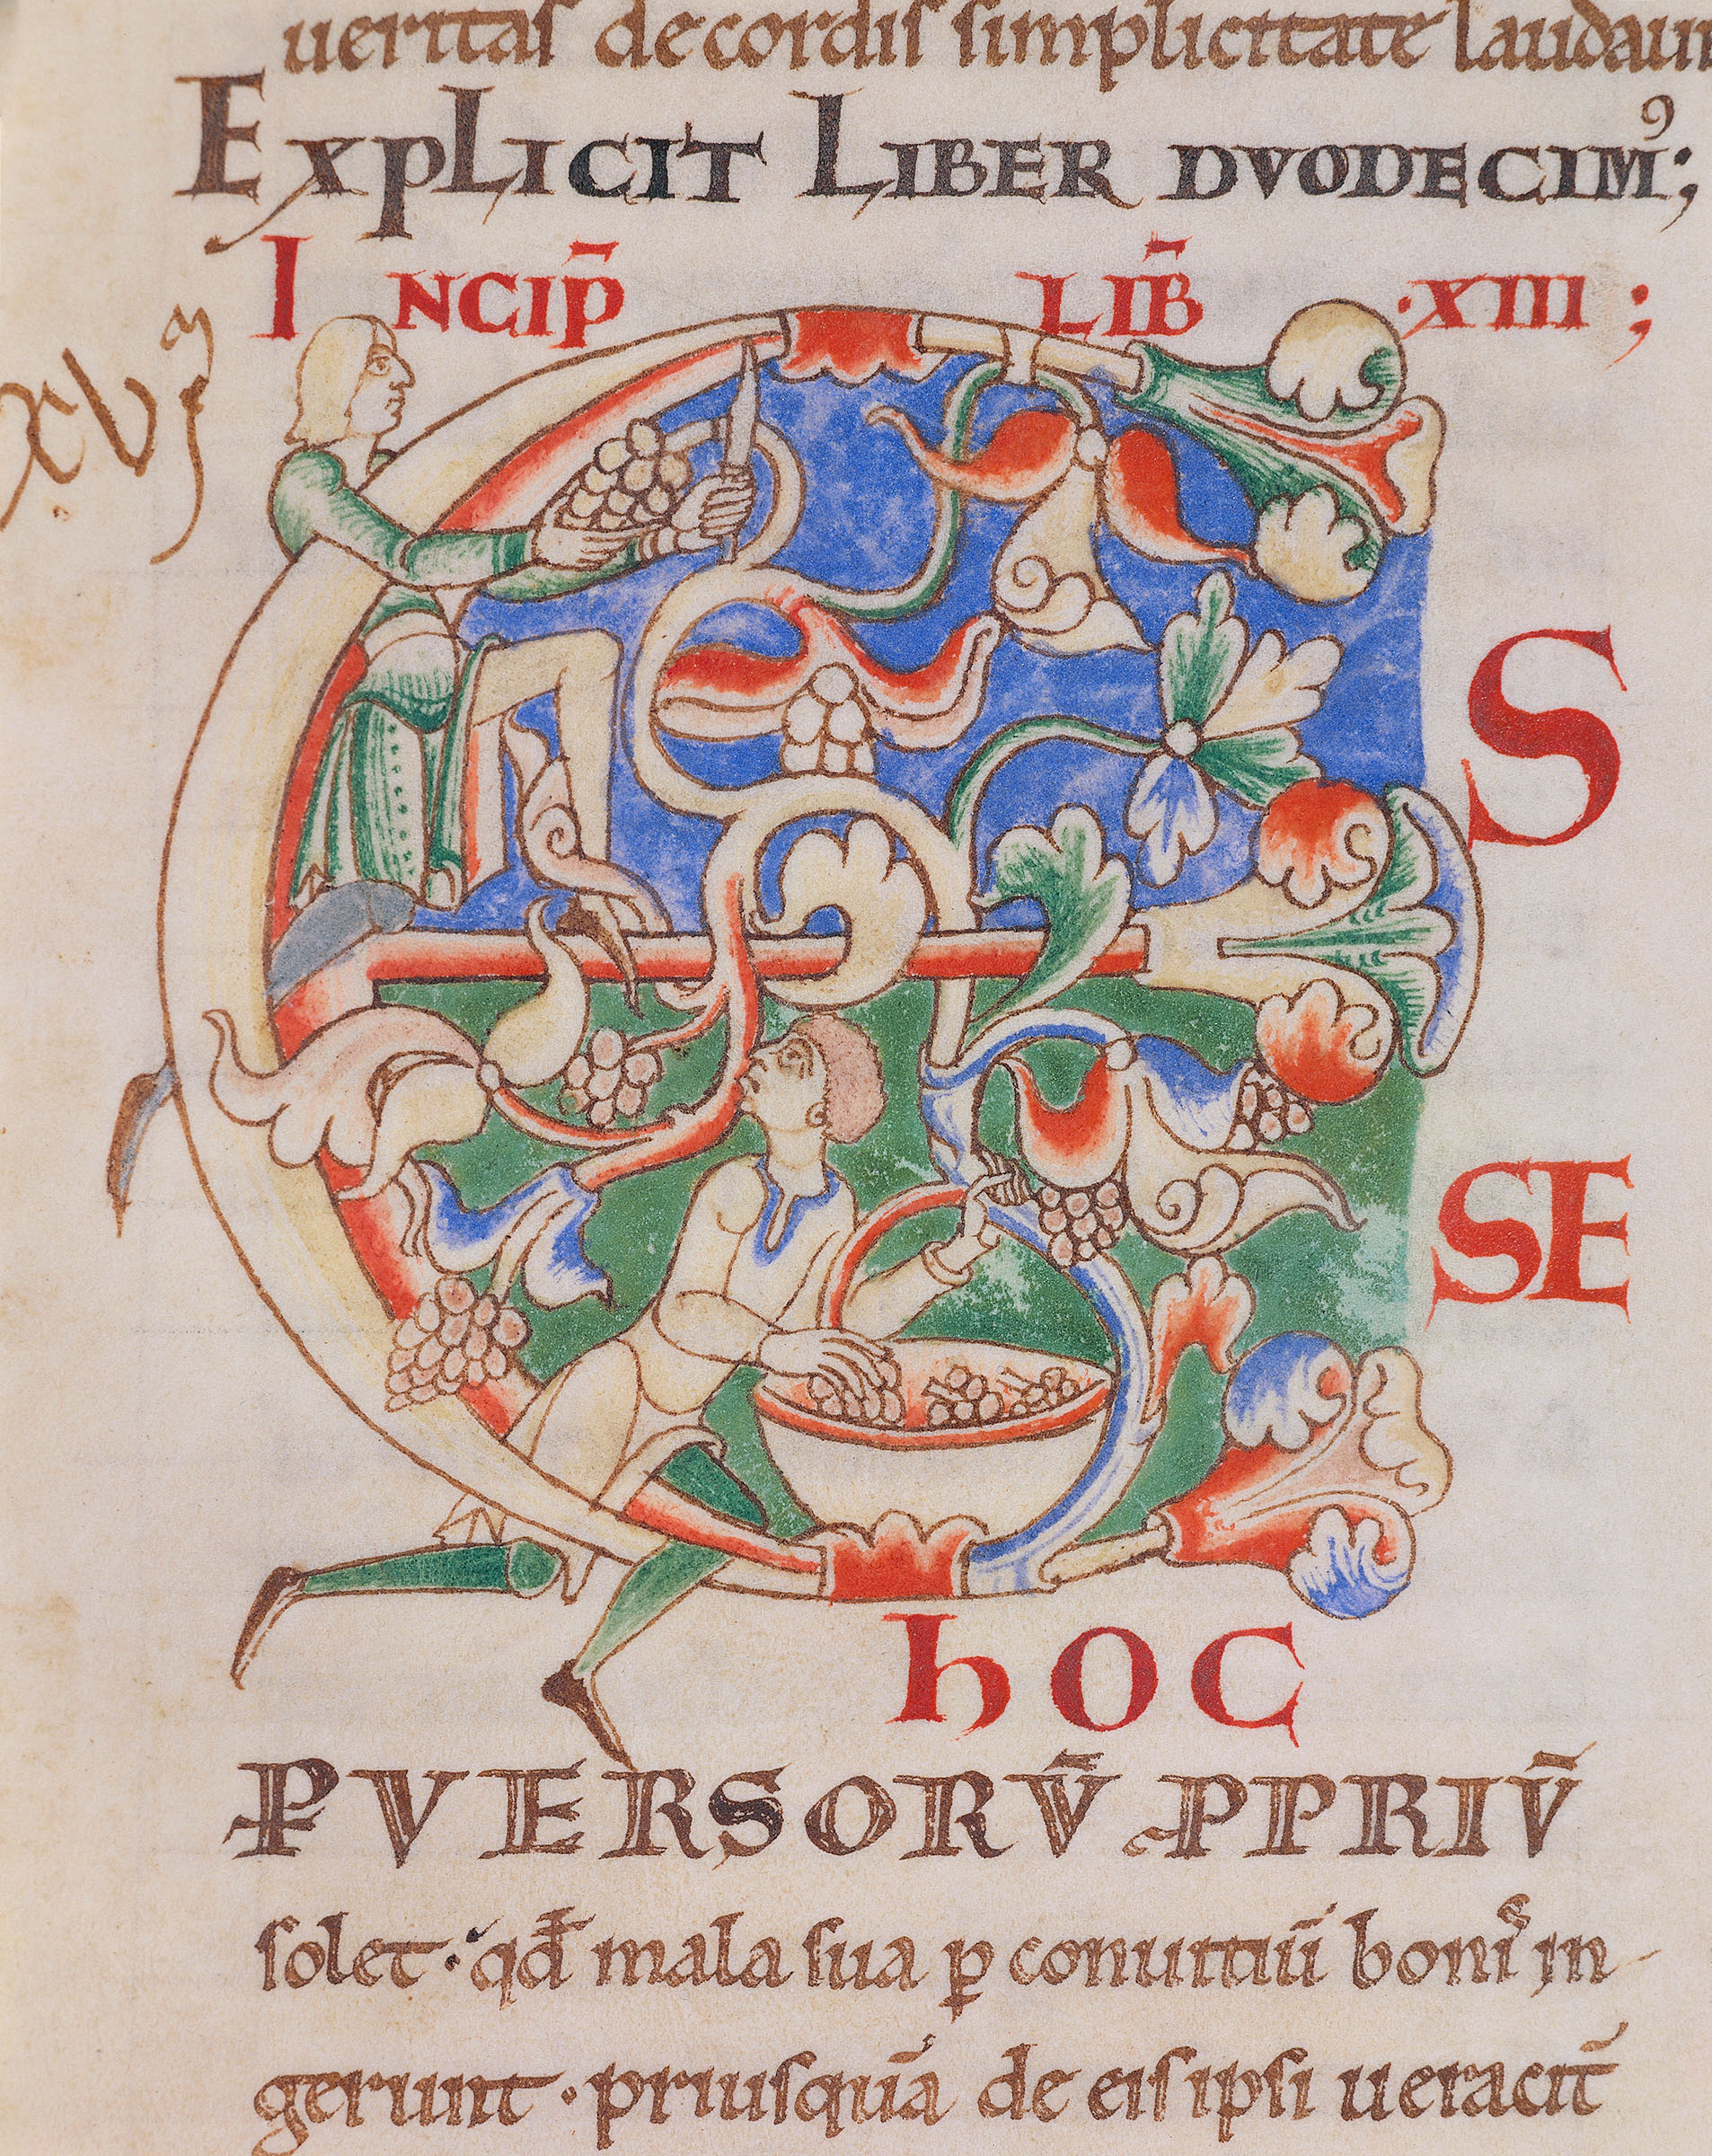 ueritas decordis simplicitate laudaui
EXPLICIT LIBER DVODECIMꝰ;
INCIP̄ LIB̄ ·XIII;
xvị
E
S
SE
hOC
ꝐVERSORV̄ ꝓPRIV̄
solet· qd̄ mala sua ꝑ conuitiū bonis in
gerunt· priusquā de eis ipsi ueracit̄